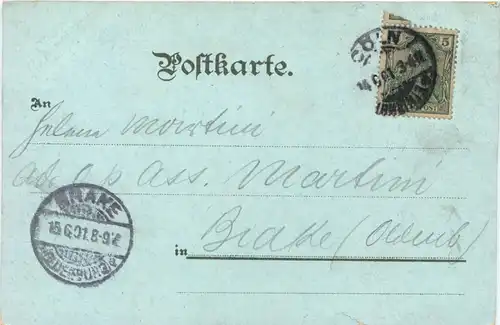 CÖLN
14.6.01. 3-4N
5
Postkarte.
An
Helene Martini
adr. Ass. Martini
BRAKE
15.6.01. 8-9V.
(OLDENBURG)
in Brake (Oldenb)